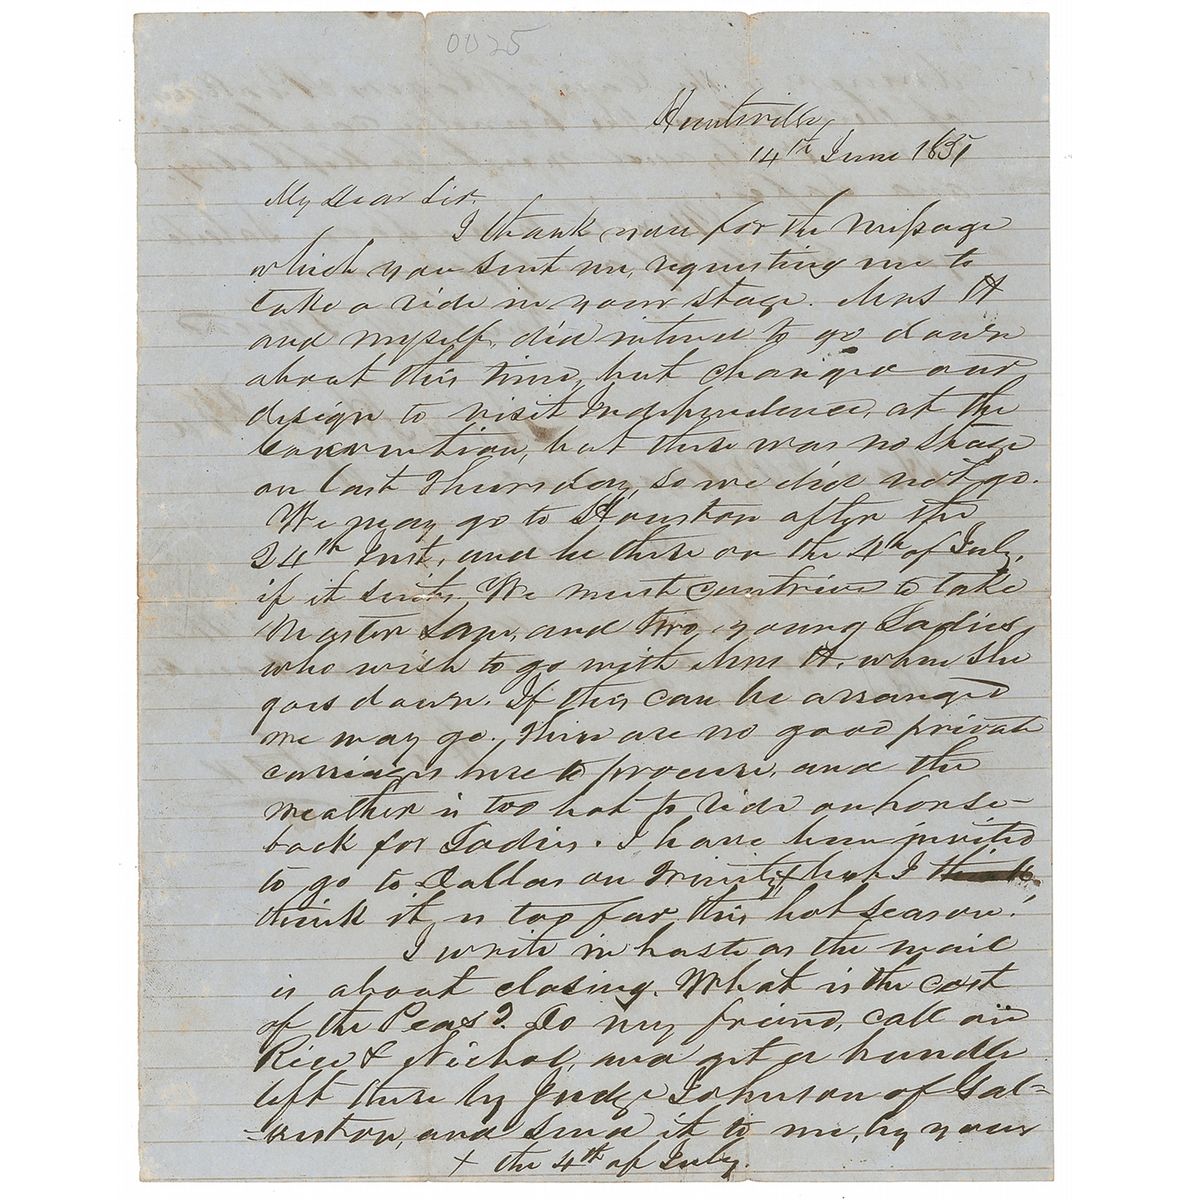 0025
Huntsville,
14th June 1851
My Dear Sir,
I thank you for the message
which you sent me, requesting me to
take a ride in your stage. Mrs H
and myself, did intend to go down
about this time, but changed our
design to visit Independence, at the
Convention, but there was no stage
on last Thursday, so we did not go.
We may go to Houston after the
24th Inst, and be there on the 4th of July,
if it suits. We must contrive to take
Master Sam, and two young Ladies,
who wish to go with Mrs H. when she
goes down. If this can be arranged
we may go. There are no good private
carriages here to procure, and the
weather is too hot to ride on horse-
back for Ladies. I have been invited
to go to Dallas on Trinity + but I
think it is too far this hot season!
I write in haste as the mail
is about closing. What is the cost
of the Peas? Do my friend, call on
Rice & Nichol, and get a bundle
left there by Judge Johnson of Gal-
-veston, and send it to me, by your
+ the 4th of July.